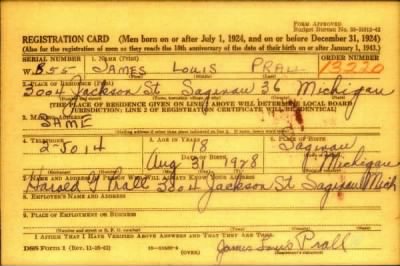 FORM APPROVED
Budget Bureau No. 33-R012-42
REGISTRATION CARD (Men born on or after July 1, 1924, and on or before December 31, 1924)
(Also for the registration of men as they reach the 18th anniversary of the date of their birth on or after January 1, 1943.)
SERIAL NUMBER 1. NAME (Print) ORDER NUMBER
W JAMES LOUIS PRALL 13220
(First) (Middle) (Last)
2. PLACE OF RESIDENCE (Print)
3204 Jackson St Saginaw 36 Michigan
[THE PLACE OF RESIDENCE GIVEN ON LINE 2 ABOVE WILL DETERMINE LOCAL BOARD
JURISDICTION; LINE 2 OF REGISTRATION CERTIFICATE WILL BE IDENTICAL]
3. MAILING ADDRESS
SAME
4. TELEPHONE 5. AGE IN YEARS 6. PLACE OF BIRTH
2-5014 18 Saginaw
DATE OF BIRTH
Aug 31 1928 Michigan
7. NAME AND ADDRESS OF PERSON WHO WILL ALWAYS KNOW YOUR ADDRESS
Harold Prall 3204 Jackson St Saginaw Mich
8. EMPLOYER'S NAME AND ADDRESS
9. PLACE OF EMPLOYMENT OR BUSINESS
I AFFIRM THAT I HAVE VERIFIED ABOVE ANSWERS AND THAT THEY ARE TRUE.
DSS Form 1 (Rev. 11-16-42) (OVER) James Louis Prall